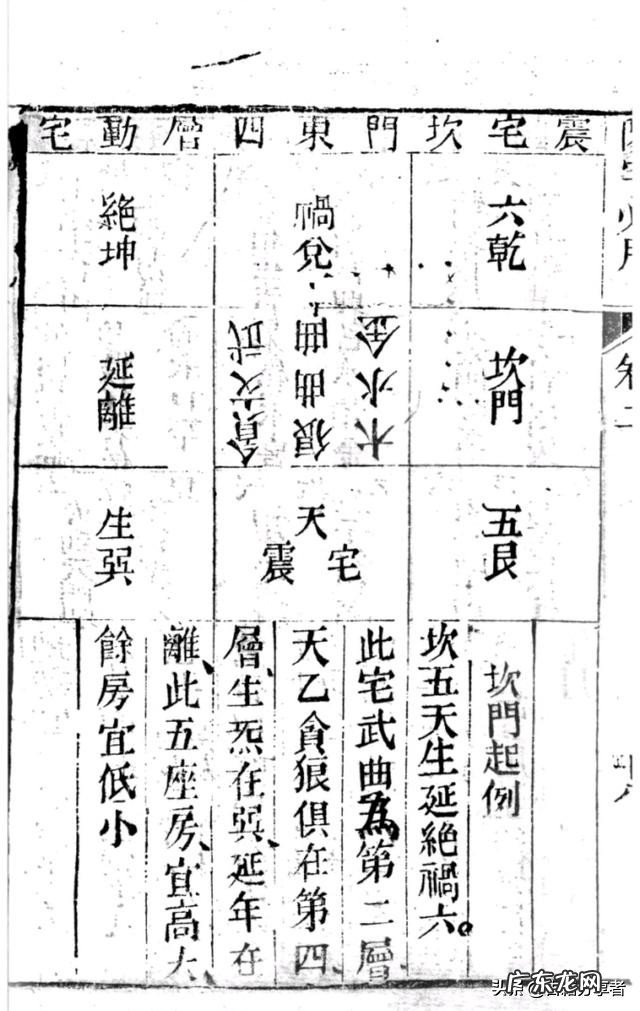 卷二
震宅坎門東四層動宅
六乾
坎門
五艮
禍兌
武曲金
文曲水
貪狼木
天
震宅
絕坤
延離
生巽
坎門起例
坎五天生延絕禍六。
此宅武曲為第二層
天乙貪狼俱在第四
層生炁在巽延年在
離、此五座房、宜高大
餘房宜低小
广东龙网